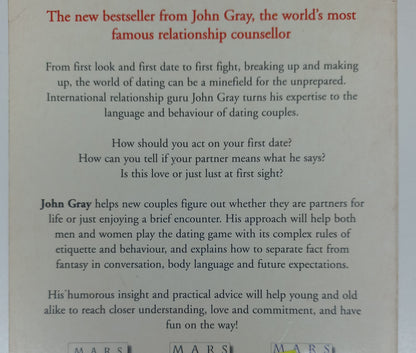 The new bestseller from John Gray, the world's most
famous relationship counsellor
From first look and first date to first fight, breaking up and making
up, the world of dating can be a minefield for the unprepared.
International relationship guru John Gray turns his expertise to the
language and behaviour of dating couples.
How should you act on your first date?
How can you tell if your partner means what he says?
Is this love or just lust at first sight?
John Gray helps new couples figure out whether they are partners for
life or just enjoying a brief encounter. His approach will help both
men and women play the dating game with its complex rules of
etiquette and behaviour, and explains how to separate fact from
fantasy in conversation, body language and future expectations.
His humorous insight and practical advice will help young and old
alike to reach closer understanding, love and commitment, and have
fun on the way!
MARS MARS MARS